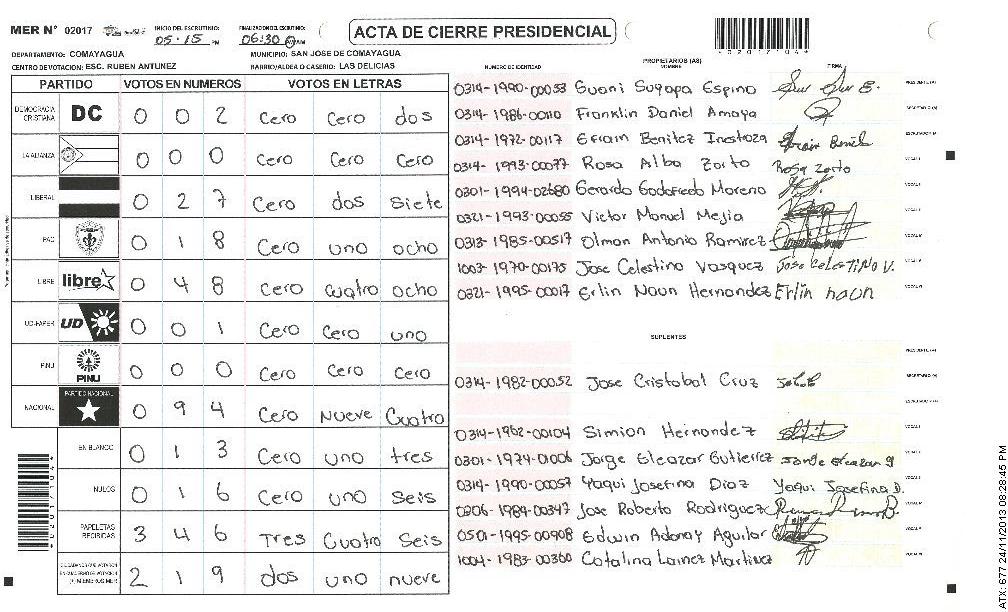 MER N° 02017 INICIO DEL ESCRUTINIO: 05:15 PM FINALIZACION DEL ESCRUTINIO: 06:30 PM ACTA DE CIERRE PRESIDENCIAL
DEPARTAMENTO: COMAYAGUA MUNICIPIO: SAN JOSE DE COMAYAGUA
CENTRO DE VOTACION: ESC. RUBEN ANTUNEZ BARRIO/ALDEA O CASERIO: LAS DELICIAS
PARTIDO VOTOS EN NUMEROS VOTOS EN LETRAS
DEMOCRACIA CRISTIANA DC 0 0 2 Cero Cero dos
LA ALIANZA 0 0 0 Cero Cero Cero
LIBERAL 0 2 7 Cero dos Siete
PAC 0 1 8 Cero uno ocho
LIBRE libre 0 4 8 Cero cuatro ocho
UD-FAPER UD 0 0 1 Cero Cero uno
PINU PINU 0 0 0 Cero Cero Cero
NACIONAL PARTIDO NACIONAL 0 9 4 Cero Nueve Cuatro
EN BLANCO 0 1 3 Cero uno tres
NULOS 0 1 6 Cero uno Seis
PAPELETAS RECIBIDAS 3 4 6 Tres Cuatro Seis
CIUDADANOS QUE VOTARON EN CUADERNO DE VOTACION (+) MIEMBROS MER 2 1 9 dos uno nueve
*02017104*
NUMERO DE IDENTIDAD PROPIETARIOS (AS) NOMBRE FIRMA
0314-1990-00053 Suani Sugapa Espino PRESIDENTE (A)
0314-1986-00110 Franklin Daniel Amaya SECRETARIO (A)
0314-1972-00117 Efrain Benitez Inestroza ESCRUTADOR (A)
0314-1993-00077 Rosa Alba Zorto Rosa Zorto VOCAL I
0301-1994-02680 Gerardo Godofredo Moreno
0321-1993-00055 Victor Manuel Mejia
0313-1985-00517 Olman Antonio Ramirez
1003-1970-00175 Jose Celestino Vasquez Jose CELESTINO V.
0321-1995-00017 Erlin Naun Hernandez Erlin naun
SUPLENTES
PRESIDENTE (A)
0314-1982-00052 Jose Cristobal Cruz SECRETARIO (A)
ESCRUTADOR (A)
0314-1962-00104 Simion Hernandez
0301-1974-01006 Jorge Eleazar Gutierrez Jorge Eleazar g
0314-1990-00057 Yaqui Josefina Diaz Yaqui Josefina D.
0306-1984-00347 Jose Roberto Rodriguez
0501-1995-00908 Edwin Adonay Aguilar
1004-1983-00360 Catalina Lainez Martinez
*02017104*
ATX: 677 24/11/2013 08:28:45 PM